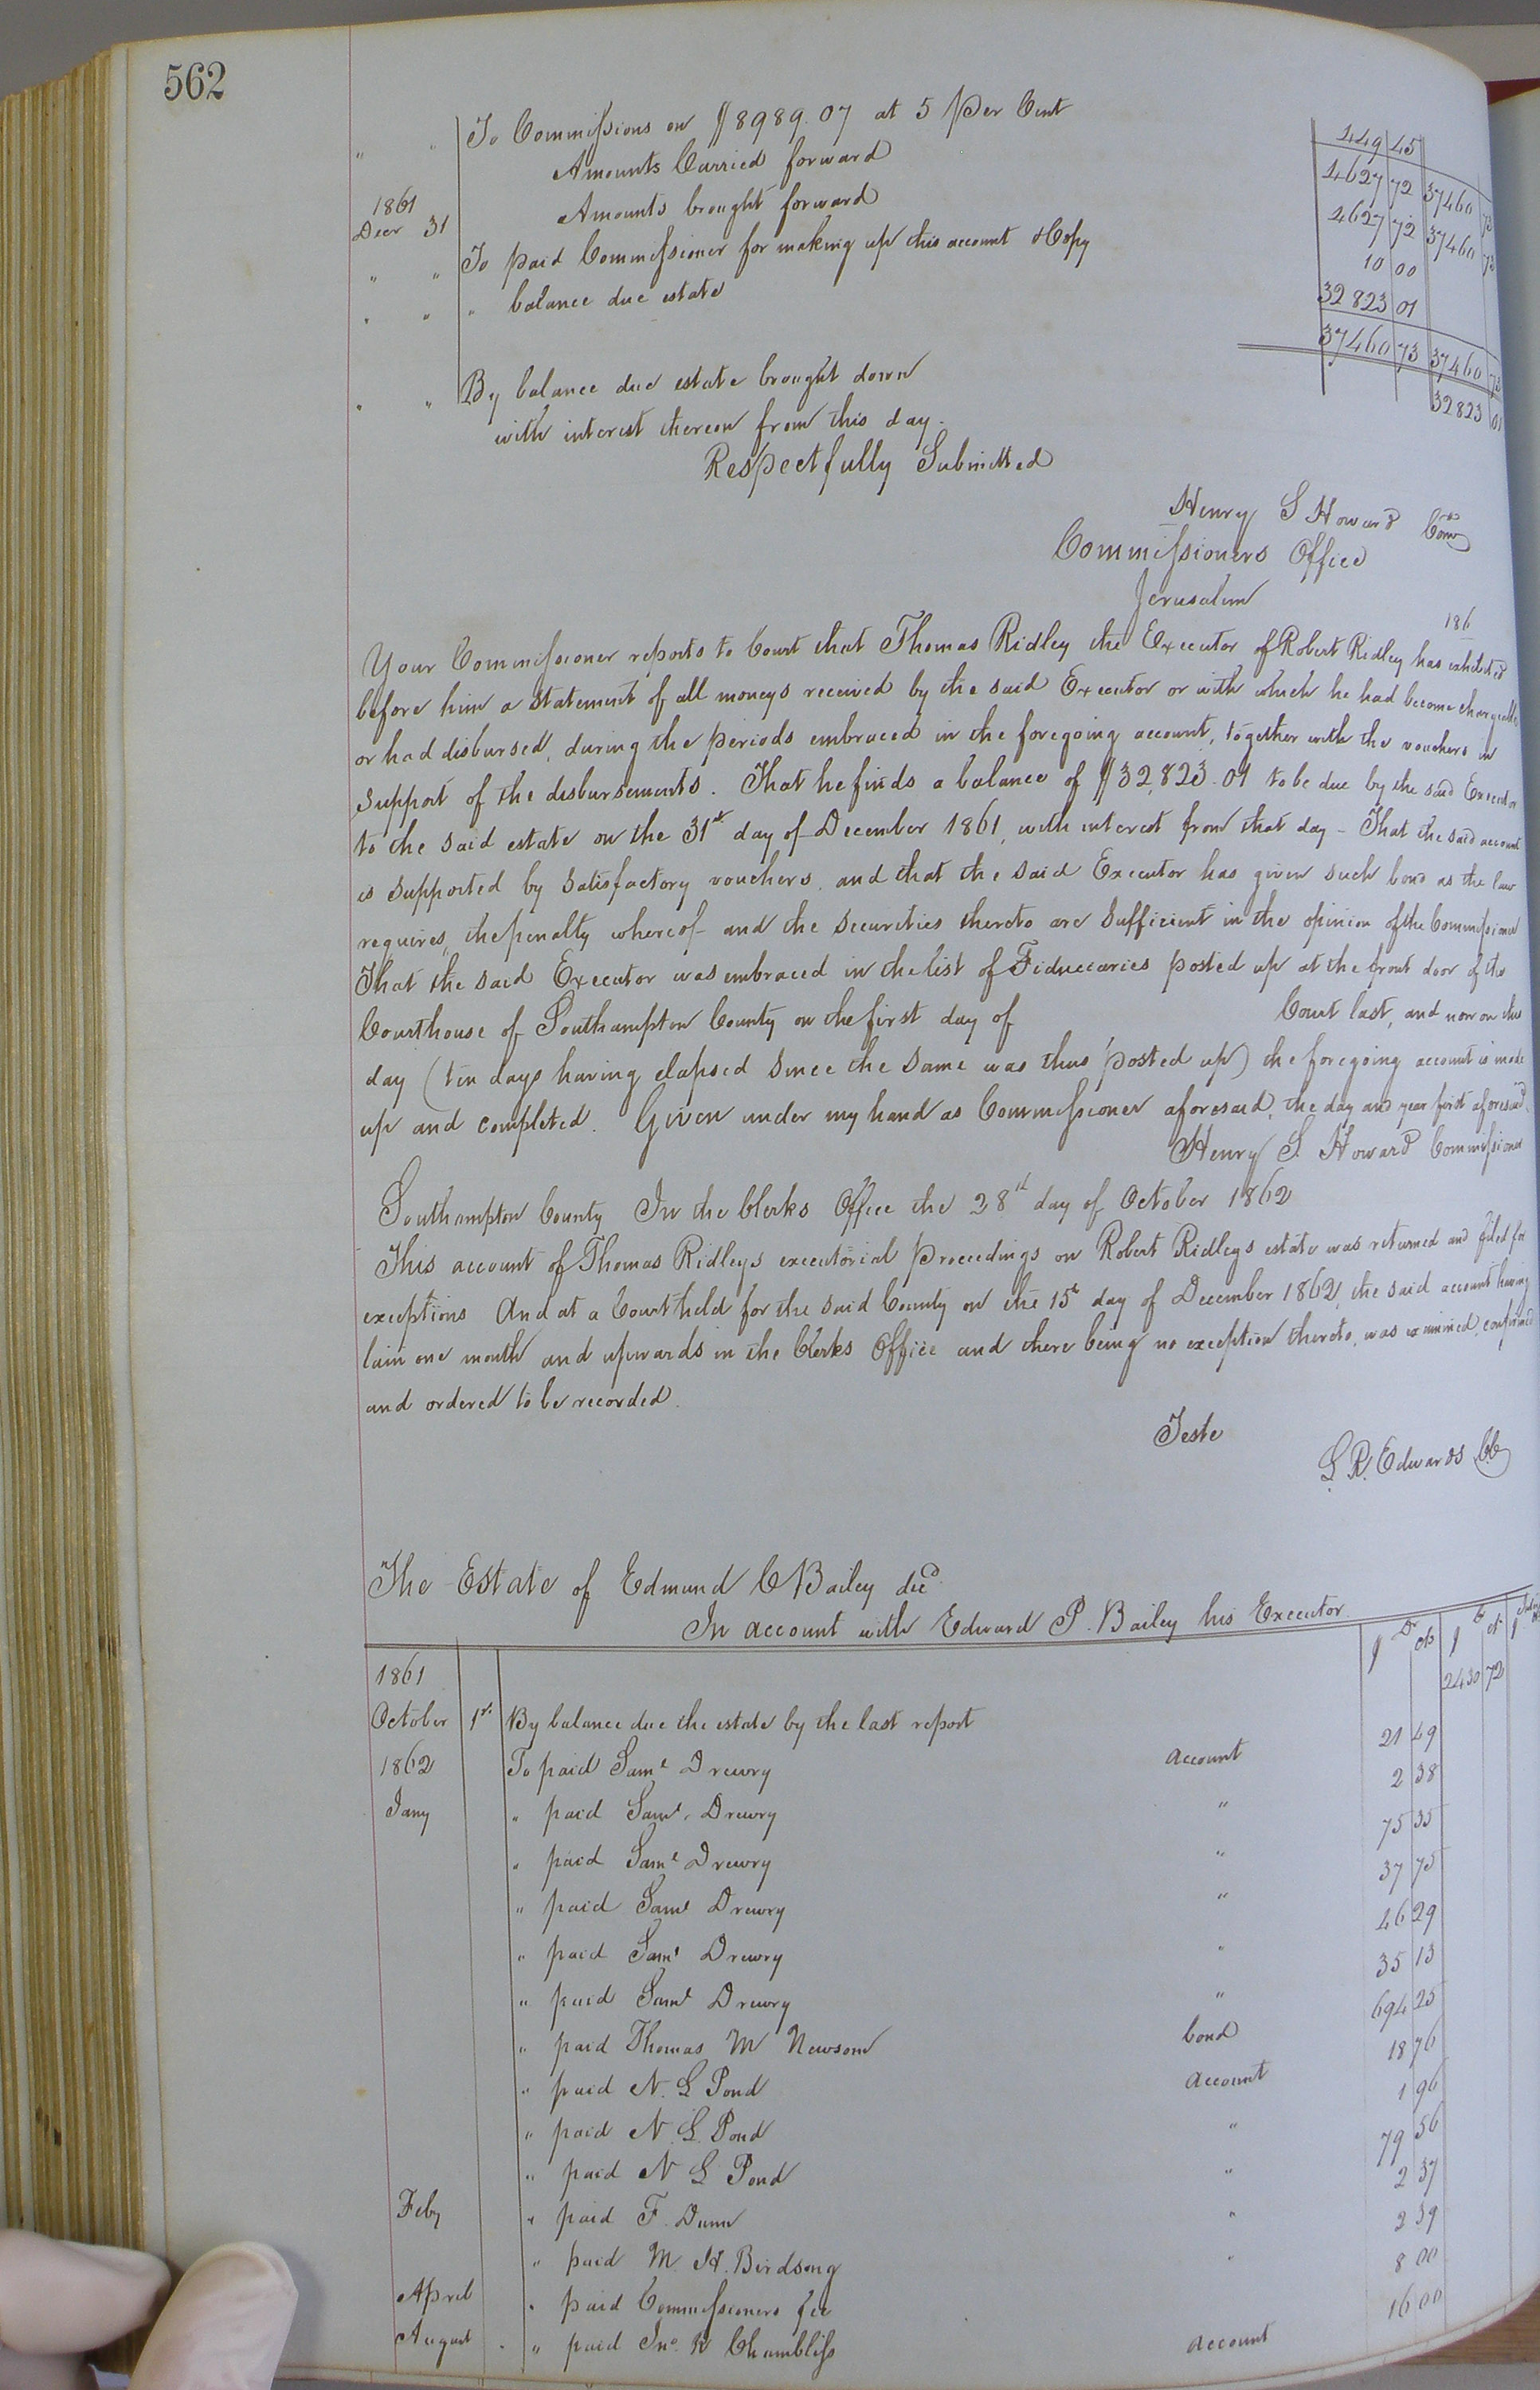 562
" " To Commissions on $8989.07 at 5 Per Cent 449 45
Amounts Carried forward 4627 72 37460 73
1861
Decr 31 Amounts brought forward 4627 72 37460 73
" " To paid Commissioner for making up this account & Copy 10 00
" " " balance due estate 32823 01
37460 73 37460 73
" " By balance due estate brought down 32823 01
with interest thereon from this day.
Respectfully Submitted
Henry S Howard Comr
Commissioners Office
Jerusalem 186
Your Commissioner reports to Court that Thomas Ridley the Executor of Robert Ridley has exhibited
before him a statement of all moneys received by the said Executor or with which he had become chargeable
or had disbursed, during the periods embraced in the foregoing account, together with the vouchers in
support of the disbursements. That he finds a balance of $32,823.01 to be due by the said Executor
to the said estate on the 31st day of December 1861, with interest from that day - That the said account
is supported by satisfactory vouchers, and that the said Executor has given such bond as the law
requires, the penalty whereof and the securities thereto are sufficient in the opinion of the Commissioner
That the said Executor was embraced in the list of Fiduciaries posted up at the front door of the
Courthouse of Southampton County on the first day of Court last, and now on this
day (ten days having elapsed since the same was thus posted up) the foregoing account is made
up and completed. Given under my hand as Commissioner aforesaid, the day and year first aforesaid.
Henry S. Howard Commissioner
Southampton County In the Clerks Office the 28th day of October 1862
This account of Thomas Ridleys executorial proceedings on Robert Ridleys estate was returned and filed for
exceptions And at a Court held for the said County on the 15th day of December 1862, the said account having
lain one month and upwards in the Clerks Office and there being no exception thereto, was examined, confirmed
and ordered to be recorded.
Teste
L. R. Edwards CC
The Estate of Edmund C Bailey decd
In account with Edward P. Bailey his Executor
$ Dr cts $ Cr ct $
1861 2430 72
October 1st By balance due the estate by the last report
1862 To paid Saml Drewry account 21 49
Jany " paid Saml Drewry " 2 38
" paid Saml Drewry " 75 35
" paid Saml Drewry " 37 75
" paid Saml Drewry " 46 29
" paid Saml Drewry " 35 13
" paid Thomas M Newsom bond 694 25
" paid N. L Pond account 18 76
" paid N. L. Pond " 1 96
" paid N L Pond " 79 56
Feby " paid F. Dunn " 2 37
" paid M. H. Birdsong " 2 39
April " paid Commissioners fee 8 00
August " paid Jno. R Chambliss account 16 00